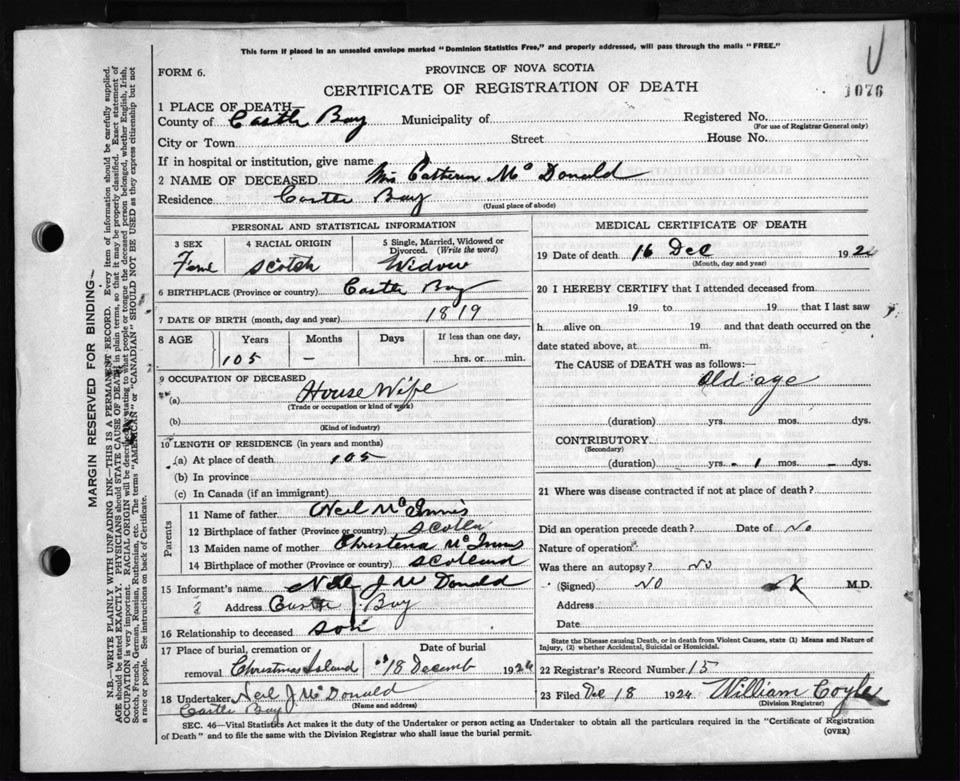 This form if placed in an unsealed envelope marked "Dominion Statistics Free," and properly addressed, will pass through the mails "FREE."
FORM 6.
PROVINCE OF NOVA SCOTIA
CERTIFICATE OF REGISTRATION OF DEATH
1076
1 PLACE OF DEATH—
County of Castle Bay Municipality of Registered No.
(For use of Registrar General only)
City or Town Street House No.
If in hospital or institution, give name
2 NAME OF DECEASED Mrs Catherin Mc Donald
Residence Castle Bay
(Usual place of abode)
PERSONAL AND STATISTICAL INFORMATION
3 SEX 4 RACIAL ORIGIN 5 Single, Married, Widowed or Divorced. (Write the word)
Feme Scotch Widow
6 BIRTHPLACE (Province or country) Castle Bay
7 DATE OF BIRTH (month, day and year) 1819
8 AGE Years Months Days If less than one day,
105 — hrs. or min.
9 OCCUPATION OF DECEASED
(a) House Wife
(Trade or occupation or kind of work)
(b)
(Kind of industry)
10 LENGTH OF RESIDENCE (in years and months)
(a) At place of death 105
(b) In province
(c) In Canada (if an immigrant)
Parents
11 Name of father Neil McInnis
12 Birthplace of father (Province or country)
13 Maiden name of mother Christena McInnis
14 Birthplace of mother (Province or country) Scotland
15 Informant's name Neil J Mc Donald
Address Castle Bay
16 Relationship to deceased son
17 Place of burial, cremation or removal Date of burial
Christmas Island 18 Decemb 1924
18 Undertaker Neil J McDonald
(Name and address)
Castle Bay
MEDICAL CERTIFICATE OF DEATH
19 Date of death 16 Dec 1924
(Month, day and year)
20 I HEREBY CERTIFY that I attended deceased from
19 to 19 that I last saw
h alive on 19 and that death occurred on the
date stated above, at m.
The CAUSE of DEATH was as follows:
Old age
(duration) yrs. mos. dys.
CONTRIBUTORY
(Secondary)
(duration) yrs. - 1 mos. - dys.
21 Where was disease contracted if not at place of death?
Did an operation precede death? Date of No
Nature of operation
Was there an autopsy? No
(Signed) NO M.D.
Address
Date
State the Disease causing Death, or in death from Violent Causes, state (1) Means and Nature of
Injury, (2) whether Accidental, Suicidal or Homicidal.
22 Registrar's Record Number 15
23 Filed Dec 18 1924 William Coyle
(Division Registrar)
SEC. 46—Vital Statistics Act makes it the duty of the Undertaker or person acting as Undertaker to obtain all the particulars required in the "Certificate of Registration
of Death" and to file the same with the Division Registrar who shall issue the burial permit.
(OVER)
MARGIN RESERVED FOR BINDING—
N.B.—WRITE PLAINLY WITH UNFADING INK—THIS IS A PERMANENT RECORD. Every item of information should be carefully supplied.
AGE should be stated EXACTLY. PHYSICIANS should STATE CAUSE OF DEATH in plain terms, so that it may be properly classified. Exact statement of
OCCUPATION is very important. RACIAL ORIGIN will be described by stating to what people or tongue the deceased person belonged, whether English, Irish,
Scotch, French, German, Russian, Ruthenian, etc. The terms "AMERICAN" or "CANADIAN" SHOULD NOT BE USED as they express citizenship but not
a race or people. See instructions on back of Certificate.